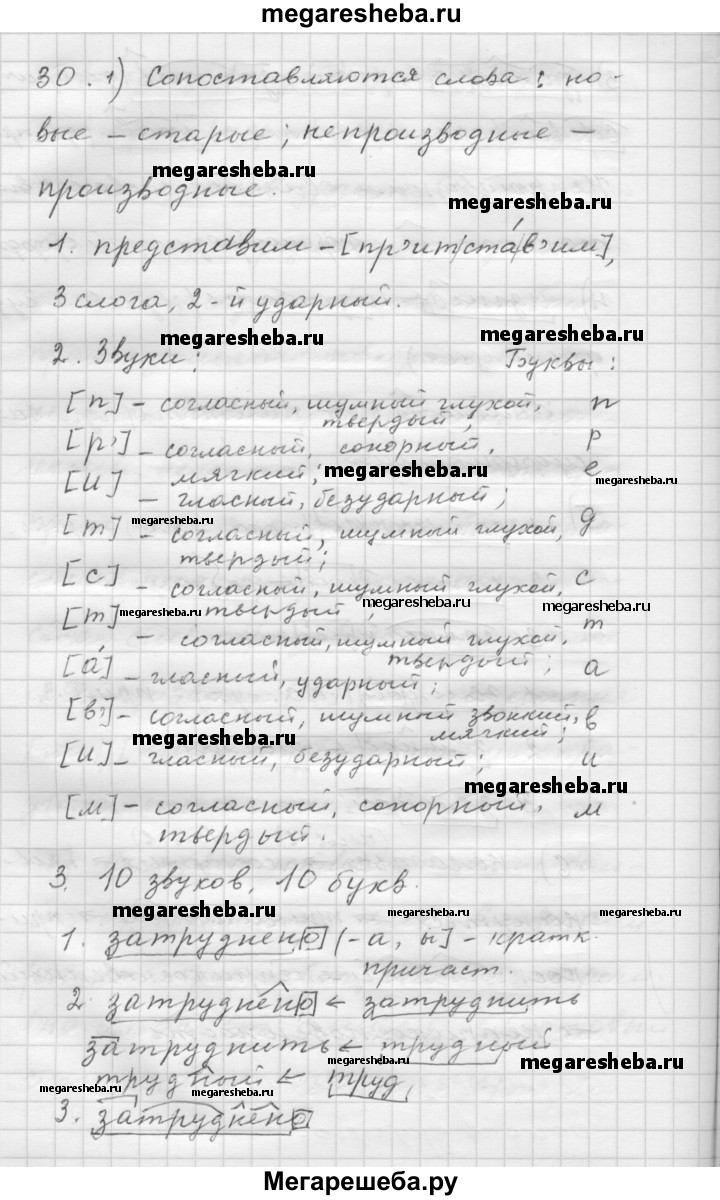 megaresheba.ru
30. 1) Сопоставляются слова: но-
вые – старые; непроизводные –
megaresheba.ru
производные.
megaresheba.ru
1. представим – [пр'ит|ста́|в'им],
3 слога, 2-й ударный.
megaresheba.ru megaresheba.ru
2. Звуки: Буквы:
[п] – согласный, шумный глухой, п
твердый;
[р'] – согласный, сонорный, р
мягкий; megaresheba.ru
[и] – гласный, безударный; е
megaresheba.ru megaresheba.ru
[т] – согласный, шумный глухой, д
твердый;
[с] – согласный, шумный глухой, с
твердый;
megaresheba.ru megaresheba.ru
[т] – согласный, шумный глухой, т
твердый;
[а́] – гласный, ударный; а
[в'] – согласный, шумный звонкий, в
мягкий;
megaresheba.ru
[и] – гласный, безударный; и
megaresheba.ru
[м] – согласный, сонорный, м
твердый.
3. 10 звуков, 10 букв.
megaresheba.ru megaresheba.ru
1. затруднено [-а, ы] – кратк.
причаст.
2. затруднено ← затруднить
затруднить ← трудный
megaresheba.ru
трудный ← труд
megaresheba.ru megaresheba.ru
3. затруднено
megaresheba.ru
Мегарешеба.ру